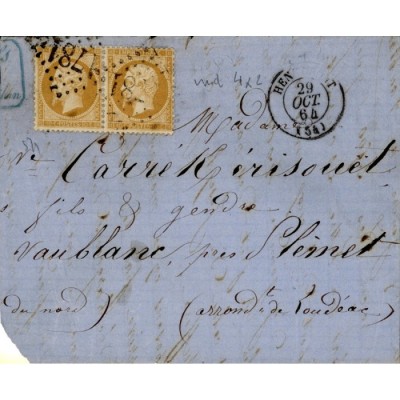 1784
vert 4x2
HEN T
29
OCT.
64
(34)
Madame
Ve Carré Kérisouët
fils & gendre
Vaublanc, près Plemet
du nord) (arrondt de Loudéac)